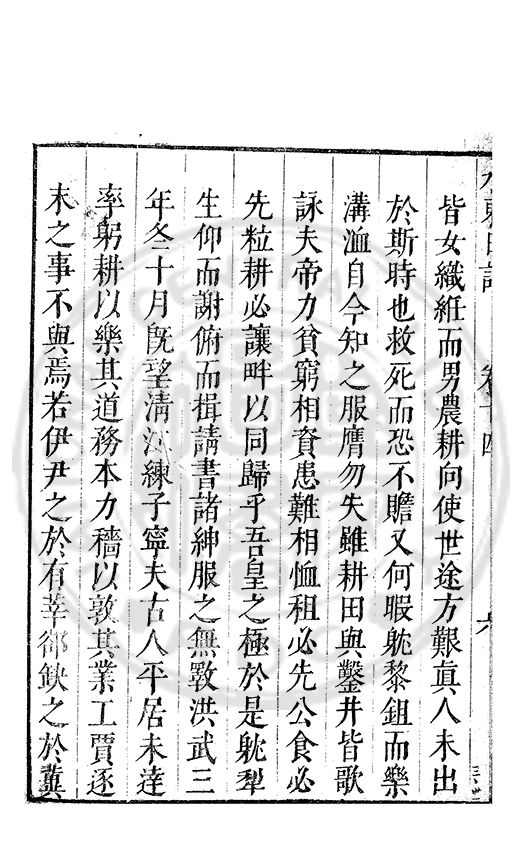 水東日記 卷十四 六
皆女織紝而男農耕向使世途方艱真人未出
於斯時也救死而恐不贍又何暇躭黎鉏而樂
溝洫自今知之服膺勿失雖耕田與鑿井皆歌
詠夫帝力貧窮相資患難相恤租必先公食必
先粒耕必讓畔以同歸乎吾皇之極於是躭犁
生仰而謝俯而揖請書諸紳服之無斁洪武三
年冬十月旣望清江練子寧夫古人平居未達
率躬耕以樂其道務本力穡以敦其業工賈逐
末之事不與焉若伊尹之於有莘郤缺之於冀